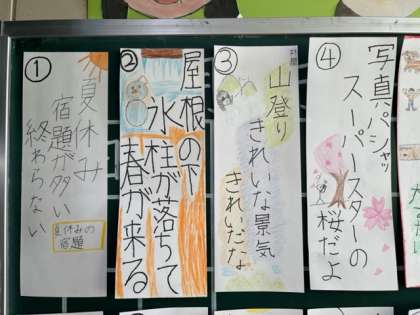 ①
夏休み
宿題が多い
終わらない
夏休みの
宿題
②
屋根の下
氷柱が落ちて
春が来る
③
山登り
きれいな景気
きれいだな
④
写真パシャッ
スーパースターの
桜だよ